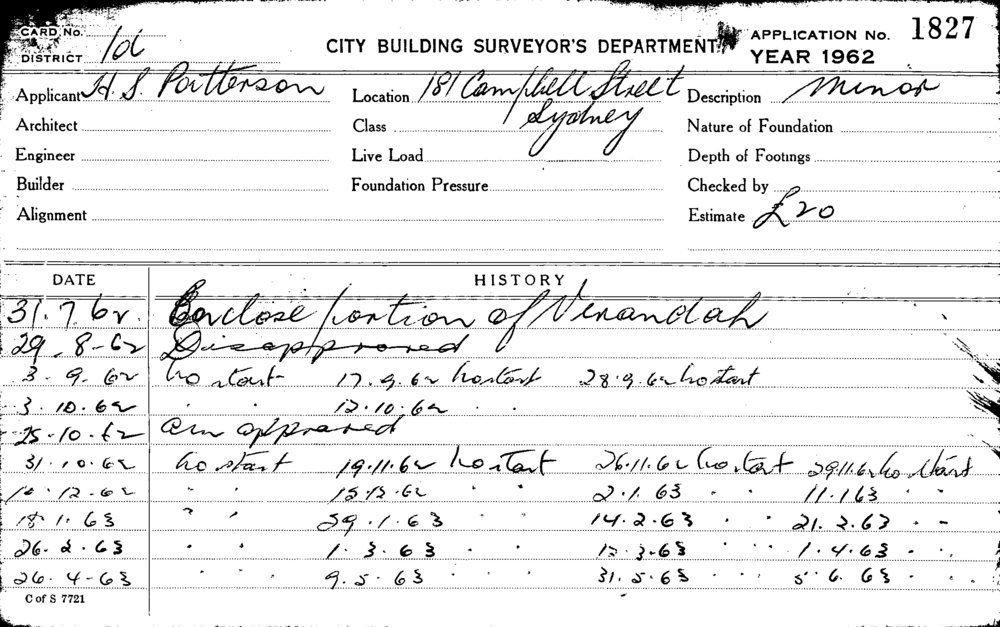 CARD No. APPLICATION No. 1827
DISTRICT CITY BUILDING SURVEYOR'S DEPARTMENT YEAR 1962
Applicant H. S. Patterson Location 181 Campbell Street Description Minor
Architect Class Sydney Nature of Foundation
Engineer Live Load Depth of Footings
Builder Foundation Pressure Checked by
Alignment Estimate £20
DATE HISTORY
31.7.62. Enclose portion of Verandah
29-8-62 Disapproved
3.9.62 No start 17.9.62 No start 28.9.62 No start
3.10.62 " " 12.10.62 " "
25.10.62 approved
31.10.62 No start 19.11.62 No start 26.11.62 No start 29.11.62 No start
12.62 " " 13.12.62 2.1.63 " " 11.1.63 " "
18.1.63 " " 29.1.63 " " 14.2.63 " " 21.2.63 " "
26.2.63 " " 1.3.63 " " 12.3.63 " " 1.4.63 " "
26.4-63 " " 9.5.63 " " 31.5.63 " " 5.6.63 " "
C of S 7721